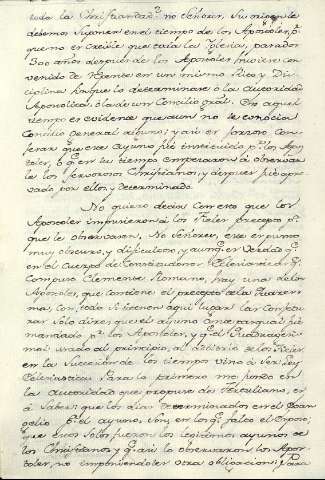 toda la Christiandad? no Señores, su origen le
debemos suponer en el tiempo de los Apostoles, p.
que no es creible que toda la Iglesia, pasados
300 años despues de los Apostoles huviese con
venido de repente en un mismo Rito, y Dis-
ciplina sin que lo determinase ô la autoridad
Apostolica, ô la de un Concilio gral. En aquel
tiempo es evidente que aun no se conocia
Concilio general alguno; y asi es forzoso con-
fesar que este ayuno fue instituido p.r los Apos-
toles, ô q.e en su tiempo empezaron â observar
le los fervorosos Christianos, y despues fue apro-
vado por ellos, y determinado.
No quiero decir con esto que los
Apostoles impusieron â los Fieles precepto p.a
que le observaran. No Señores, este es punto
muy obscuro, y dificultoso, y aunq.e es verdad q.e
en el Cuerpo de Constituciones Eclesiasticas q.e
compuso Clemente Romano, hay una de los
Apostoles, que contiene el precepto de la Quares-
ma, con todo si tienen aqui lugar las conjetu
ras solo dire, que el ayuno ante pasqual fue
mandado p.r los Apostoles, y q.e el Quadragesi-
mal usado al principio, al arbitrio de los Fieles
en la succesion de los tiempos vino â ser Ley
Eclesiastica. Para lo primero me fundo en
la autoridad que propuse de Tertuliano, es
â saber: que los dias determinados en el Evan
gelio p.a el ayuno, son, en los q.e falto el Esposo;
que estos solos fueron los legitimos ayunos de
los Christianos y q.e asi lo observaron los Apos-
toles, no imponiendoles otra obligacion: Para